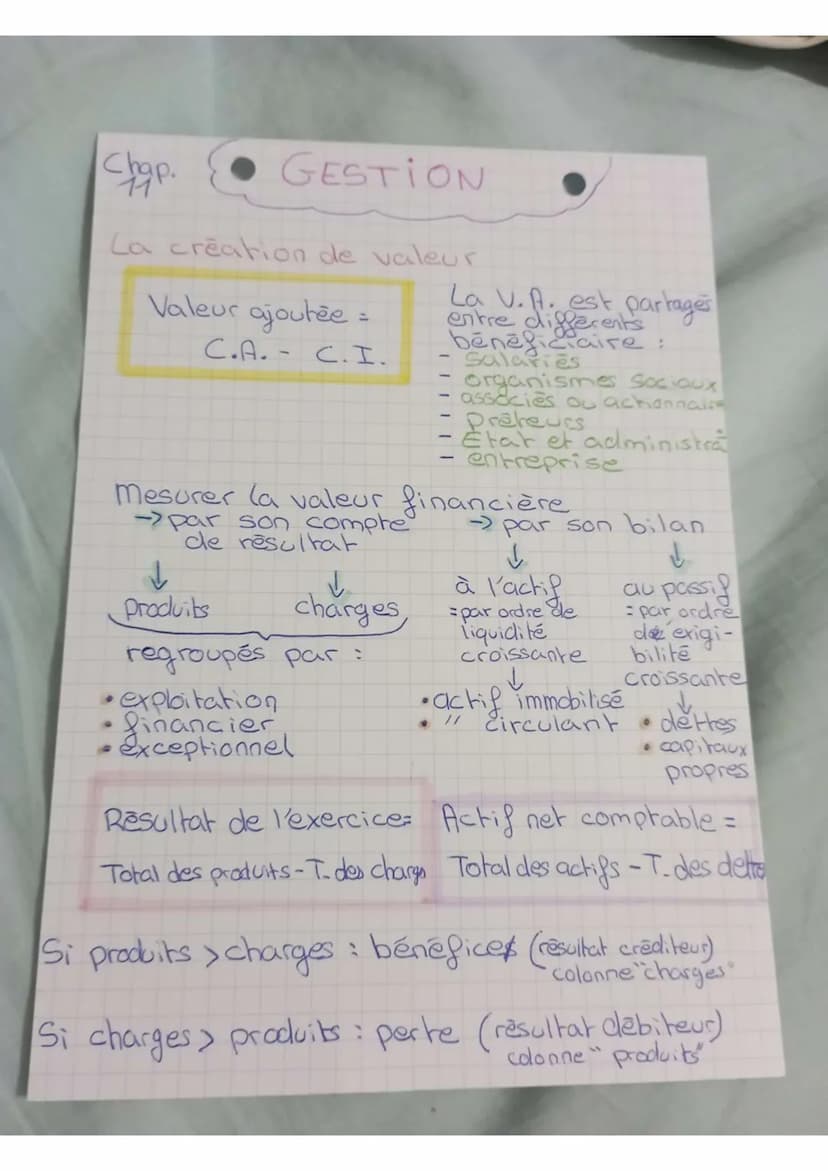 Chap. 11
GESTION
La création de valeur
Valeur ajoutée =
C.A. - C.I.
La V.A. est partagés
entre différents
bénéficiaire :
- salariés
- organismes sociaux
- associés ou actionnaire
- prêteurs
- État et administra
- entreprise
Mesurer la valeur financière
→ par son compte
de résultat
↓ ↓
produits charges
regroupés par :
• exploitation
• financier
• exceptionnel
→ par son bilan
↓ ↓
à l'actif
= par ordre de
liquidité
croissante
↓
• actif immobilisé
• " circulant
au passif
= par ordre
de exigi-
bilité
croissante
↓
• dettes
• capitaux
propres
Résultat de l'exercice =
Total des produits - T. des charges
Actif net comptable =
Total des actifs - T. des dettes
Si produits > charges : bénéfices (résultat créditeur)
colonne "charges"
Si charges > produits : perte (résultat débiteur)
colonne "produits"